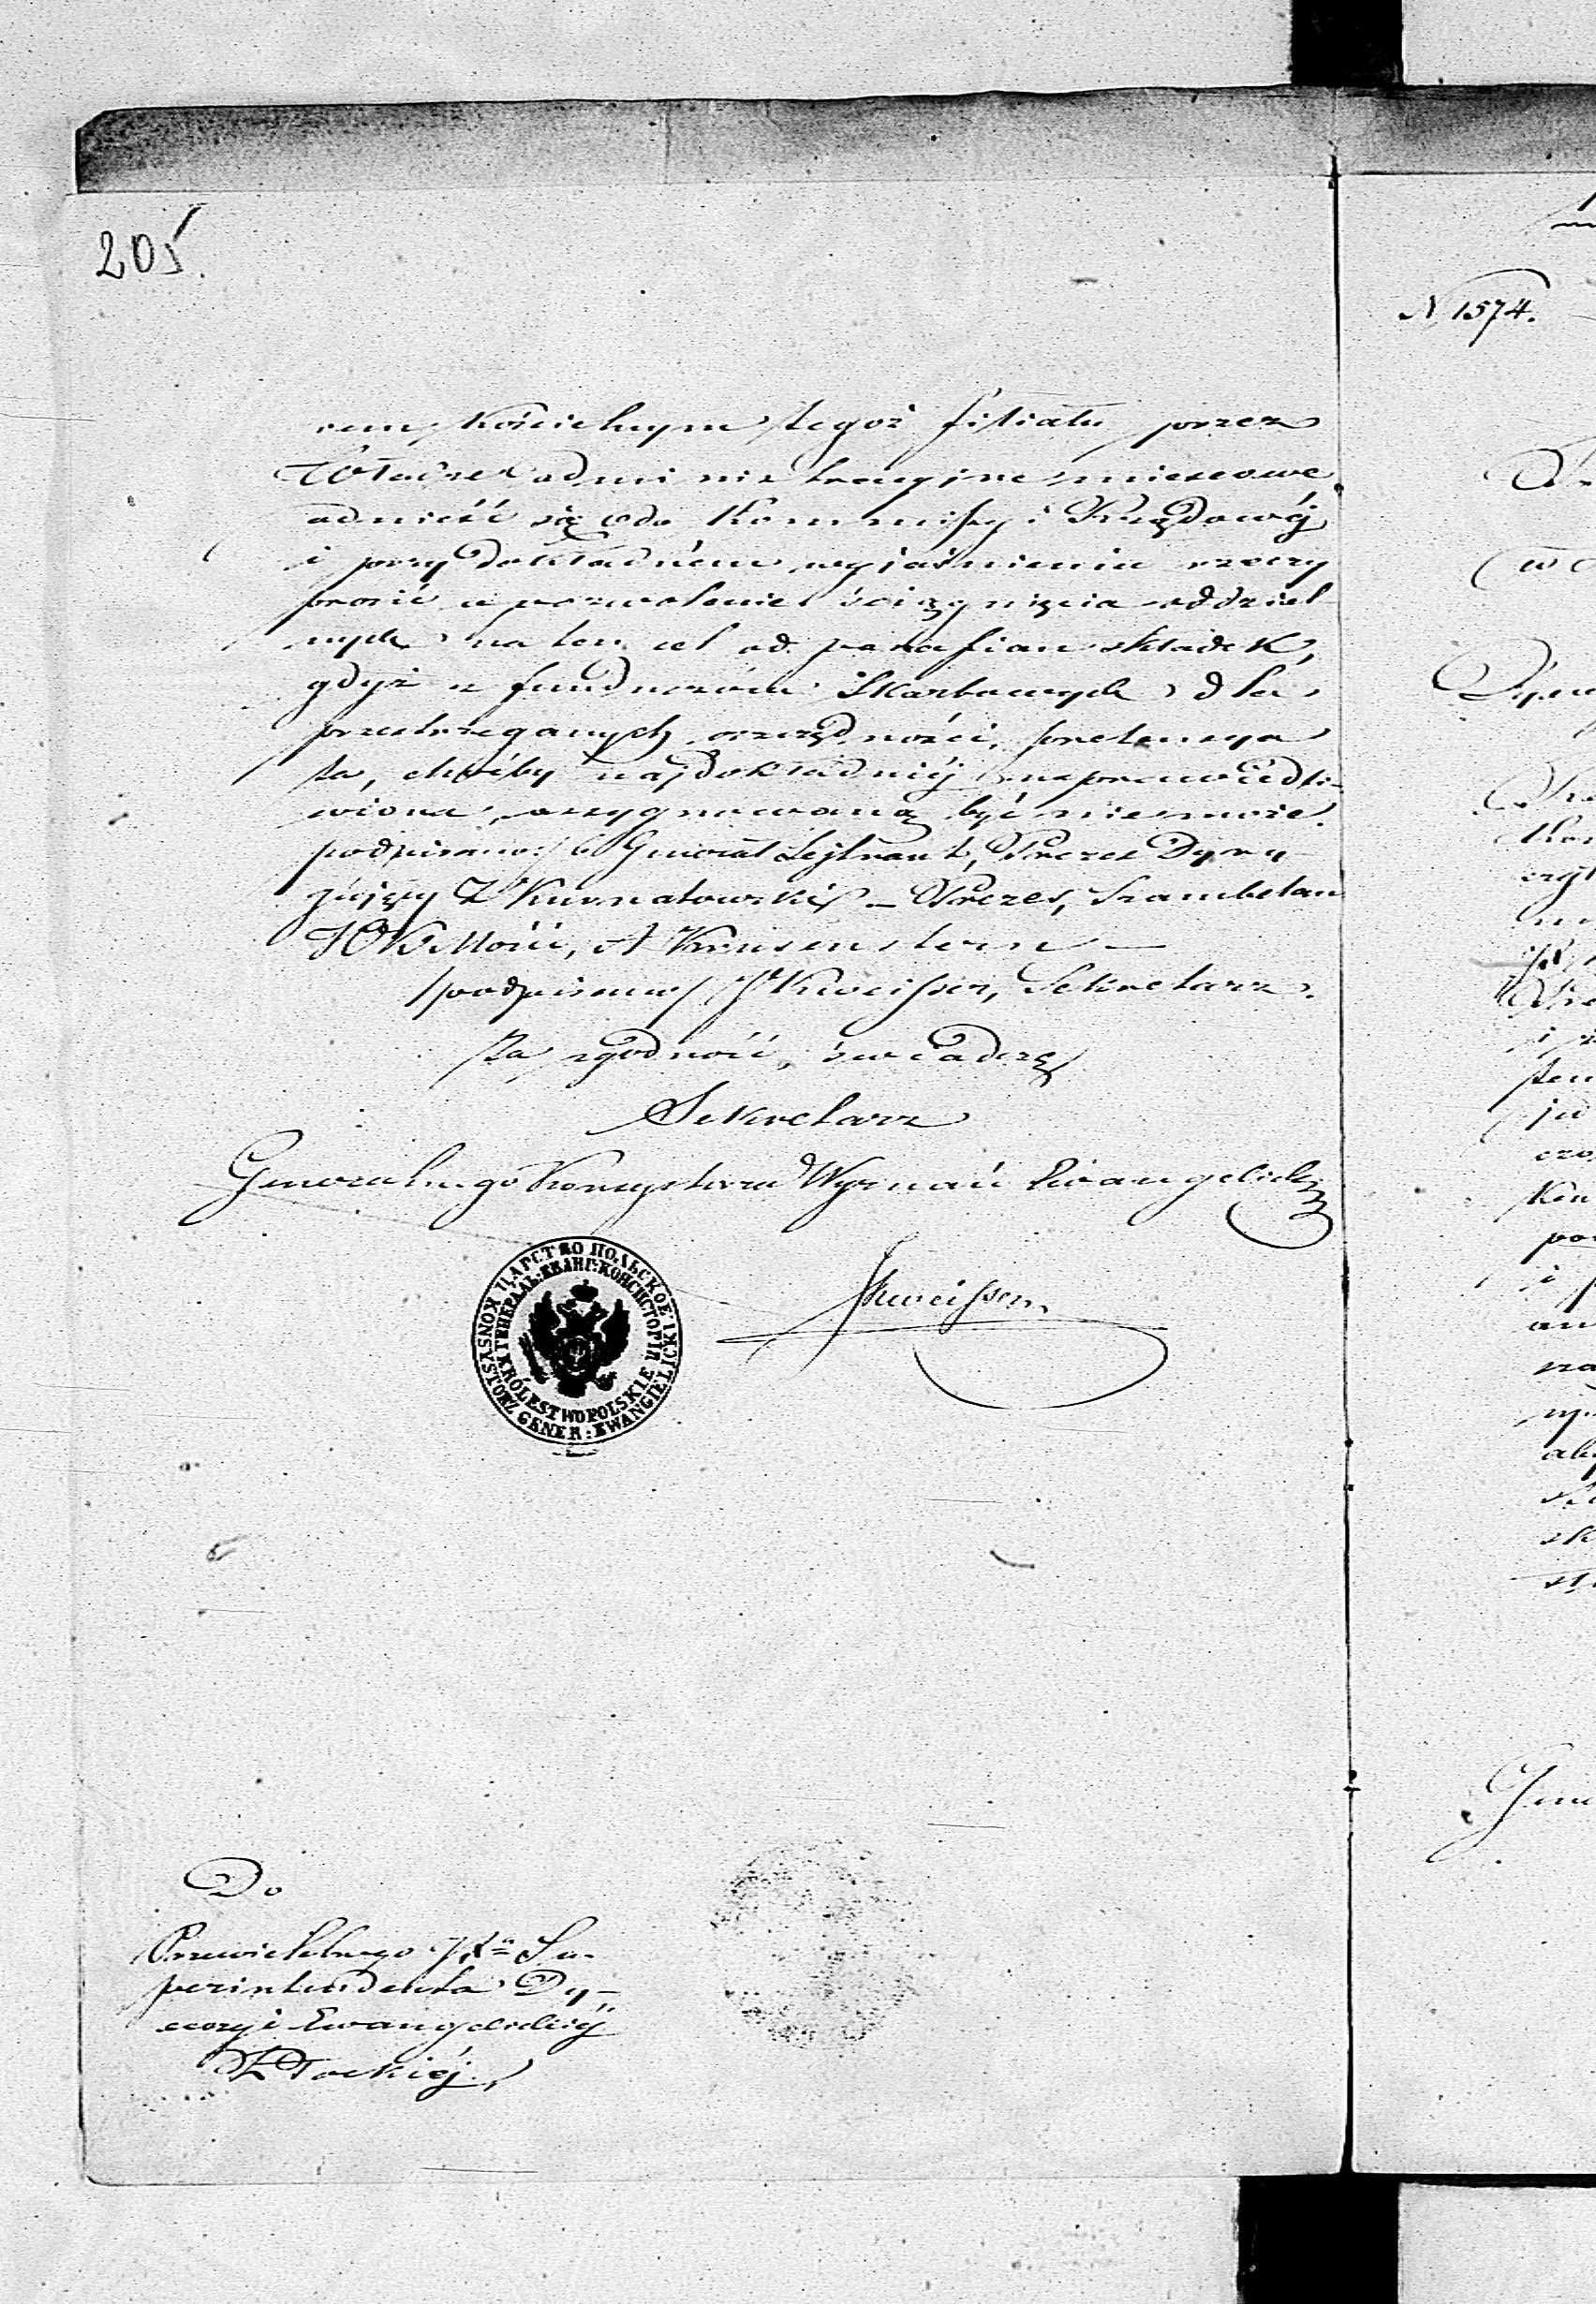 205.
rem Kościelnym tegoż filiału przez
Władze administracyjne miejscowe
odnieść się do Kommissyi Rządowéj
i przy dokładném wyjaśnieniu rzeczy
prosić o pozwolenie ściągnięcia oddziel
nych na ten cel od parafian składek,
gdyż z funduszów Skarbowych dla
przestrzeganych oszczędności, pretensya
ta, choćby najdokładniéj usprawiedli-
wiona, assygnowaną być nie może.
podpisano: Generał Lejtnant, Prezes Dyry
gujący Z Kurnatowski – Prezes, Szambelan
JCKMości, A Krusenstern –
/podpisano/ Kweisser, Sekretarz.
Za zgodność, świadczę
Sekretarz
Generalnego Konsystorza Wyznań Ewangelickich
ЦАРСТВО ПОЛЬСКОЕ
ГЕНЕРАЛЬ: ЕВАНГ: КОНСИСТОРІЯ
KRÓLESTWO POLSKIE
KONSYSTORZ GENER: EWANGIELICKI
Kweisser
Do
Przewielebnego JX Su-
perintendenta Dy-
ecezyi Ewangelickiéj
Płockiéj.
N 1574.